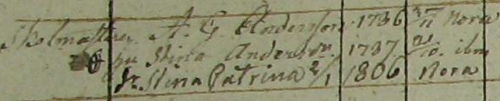 Skolmästare A. G. Anderson 1736 3/11 Nora
hu Stina Anderson 1737 21/10 ibm
dr Stina Catrina 2/1 1806 Nora